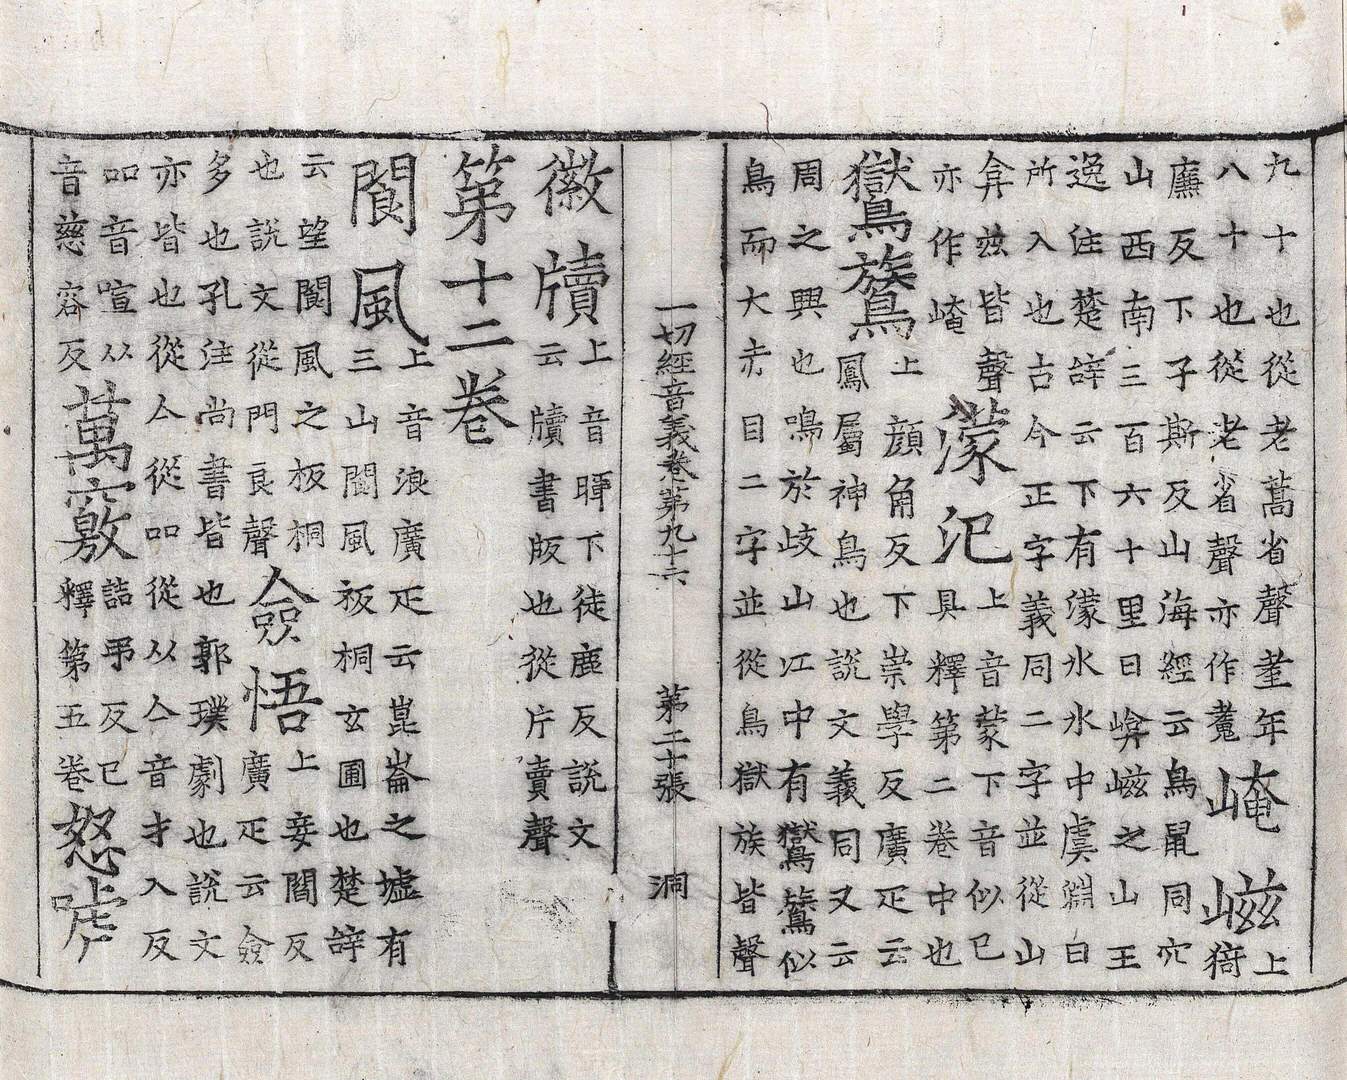 九十也從老蒿省聲耋年
八十也從老省聲亦作耄
崦嵫上猗
廉反下子斯反山海經云鳥鼠同穴
山西南三百六十里曰崦嵫之山王
逸注楚辞云下有濛水水中虞淵日
所入也古今正字義同二字並從山
弇兹皆聲
亦作崦
濛汜上音蒙下音似已
具釋第二卷中也
鸑鷟上顔角反下崇學反廣疋云
鳳屬神鳥也說文義同又云
周之興也鳴於歧山江中有鸑鷟似
鳥而大赤目二字並從鳥獄族皆聲
一切經音義卷第九十六 第二十張 洞
徽牘上音暉下徒鹿反說文
云牘書版也從片賣聲
第十二卷
閬風上音浪廣疋云崑崙之墟有
三山閬風板桐玄圃也楚辞
云望閬風之板桐
也說文從門良聲
僉悟上妾閻反
廣疋云僉
多也孔注尚書皆也郭璞劇也說文
亦皆也從亼從吅從从亼音才入反
吅音喧从
音慈容反
萬竅詰弔反已
釋第五卷
怒唬